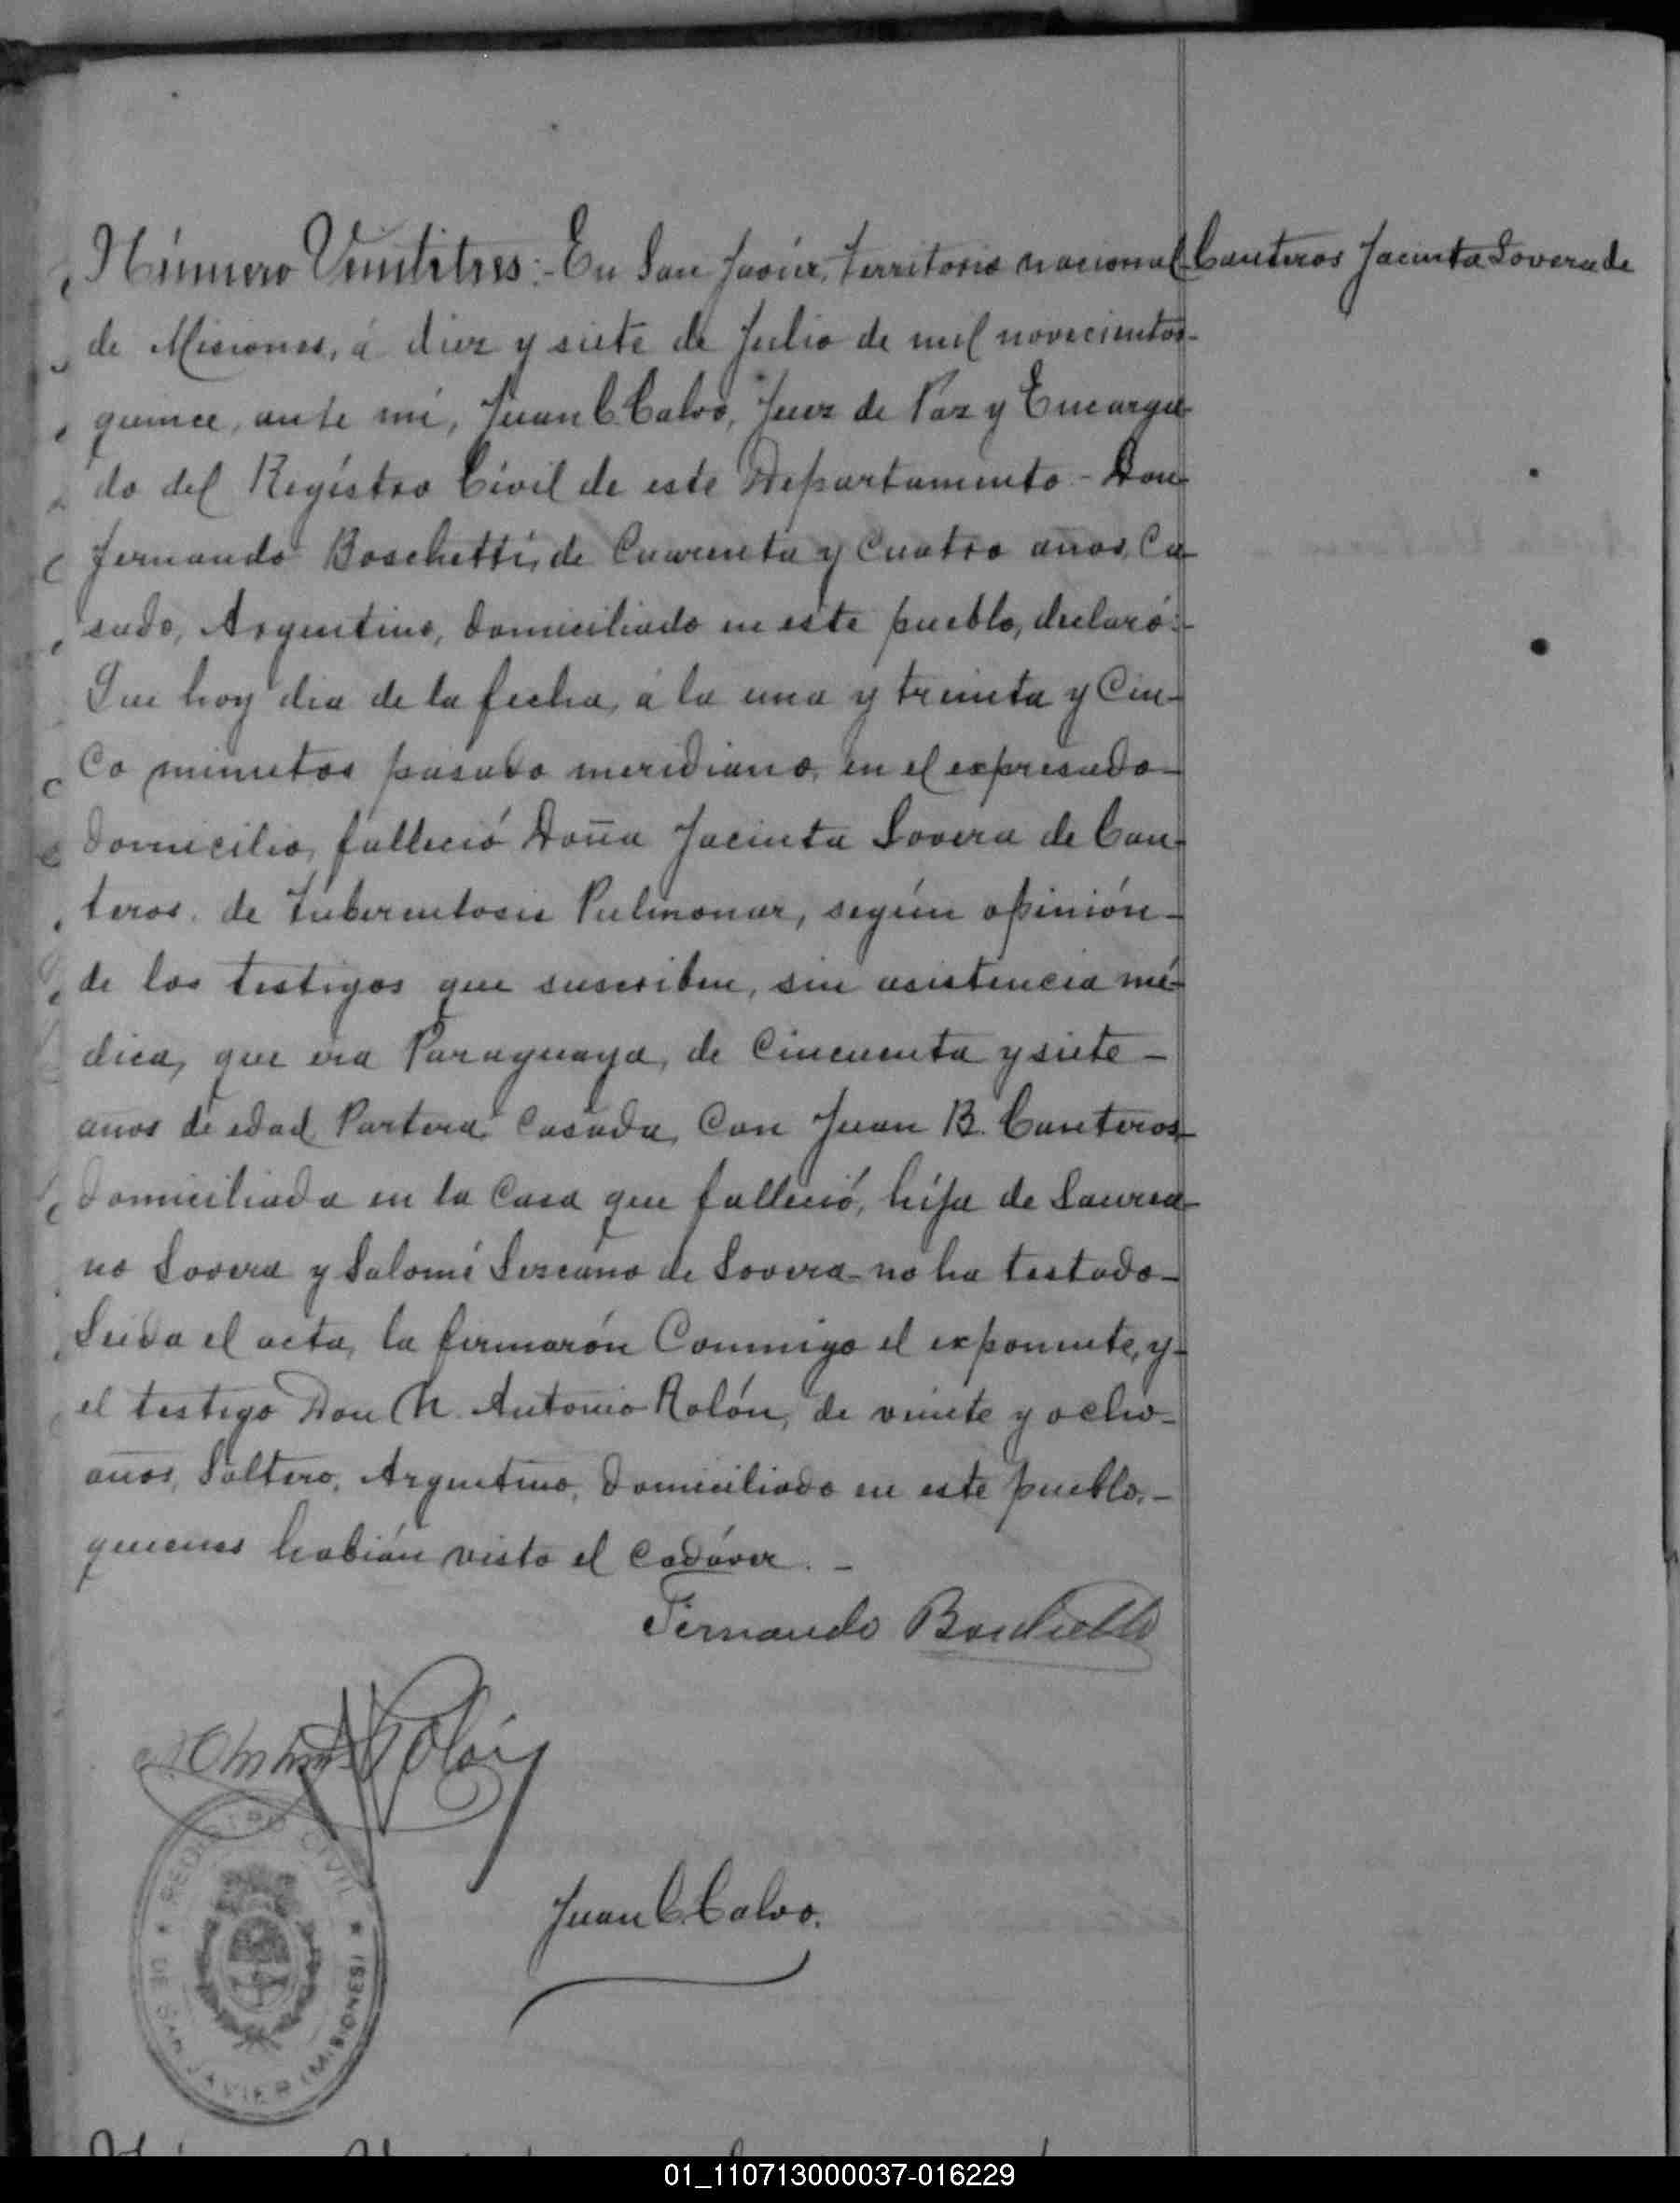 Número Veintitres:- En San Javier, Territorio nacional
Canteros Jacinta Lovera de
de Misiones, á diez y siete de Julio de mil novecientos-
quince, ante mi, Juan C. Calvo, Juez de Paz y Encarga-
do del Registro Civil de este Departamento - Don
Fernando Boschetti, de Cuarenta y Cuatro años, Ca-
sado, Argentino, domiciliado en este pueblo, declaró:-
Que hoy dia de la fecha, á la una y treinta y Cin-
co minutos pasado meridiano, en el expresado-
domicilio, falleció Doña Jacinta Lovera de Can-
teros, de Tuberculosis Pulmonar, según opinión-
de los testigos que suscriben, sin asistencia mé-
dica, que era Paraguaya, de Cincuenta y siete -
años de edad, Partera, Casada, Con Juan B. Canteros-
domiciliada en la Casa que falleció, hija de Lauria-
no Lovera y Salomé Lescano de Lovera - no ha testado-
Leida el acta, la firmarón Conmigo el exponente, y-
el testigo Don N. Antonio Rolón, de veinte y ocho-
años, Soltero, Argentino, domiciliado en este pueblo,-
quienes habián visto el Cadáver. -
Fernando Boschetti
Rolón
Juan C. Calvo.
REGISTRO CIVIL
DE SAN JAVIER (MISIONES)
01_110713000037-016229